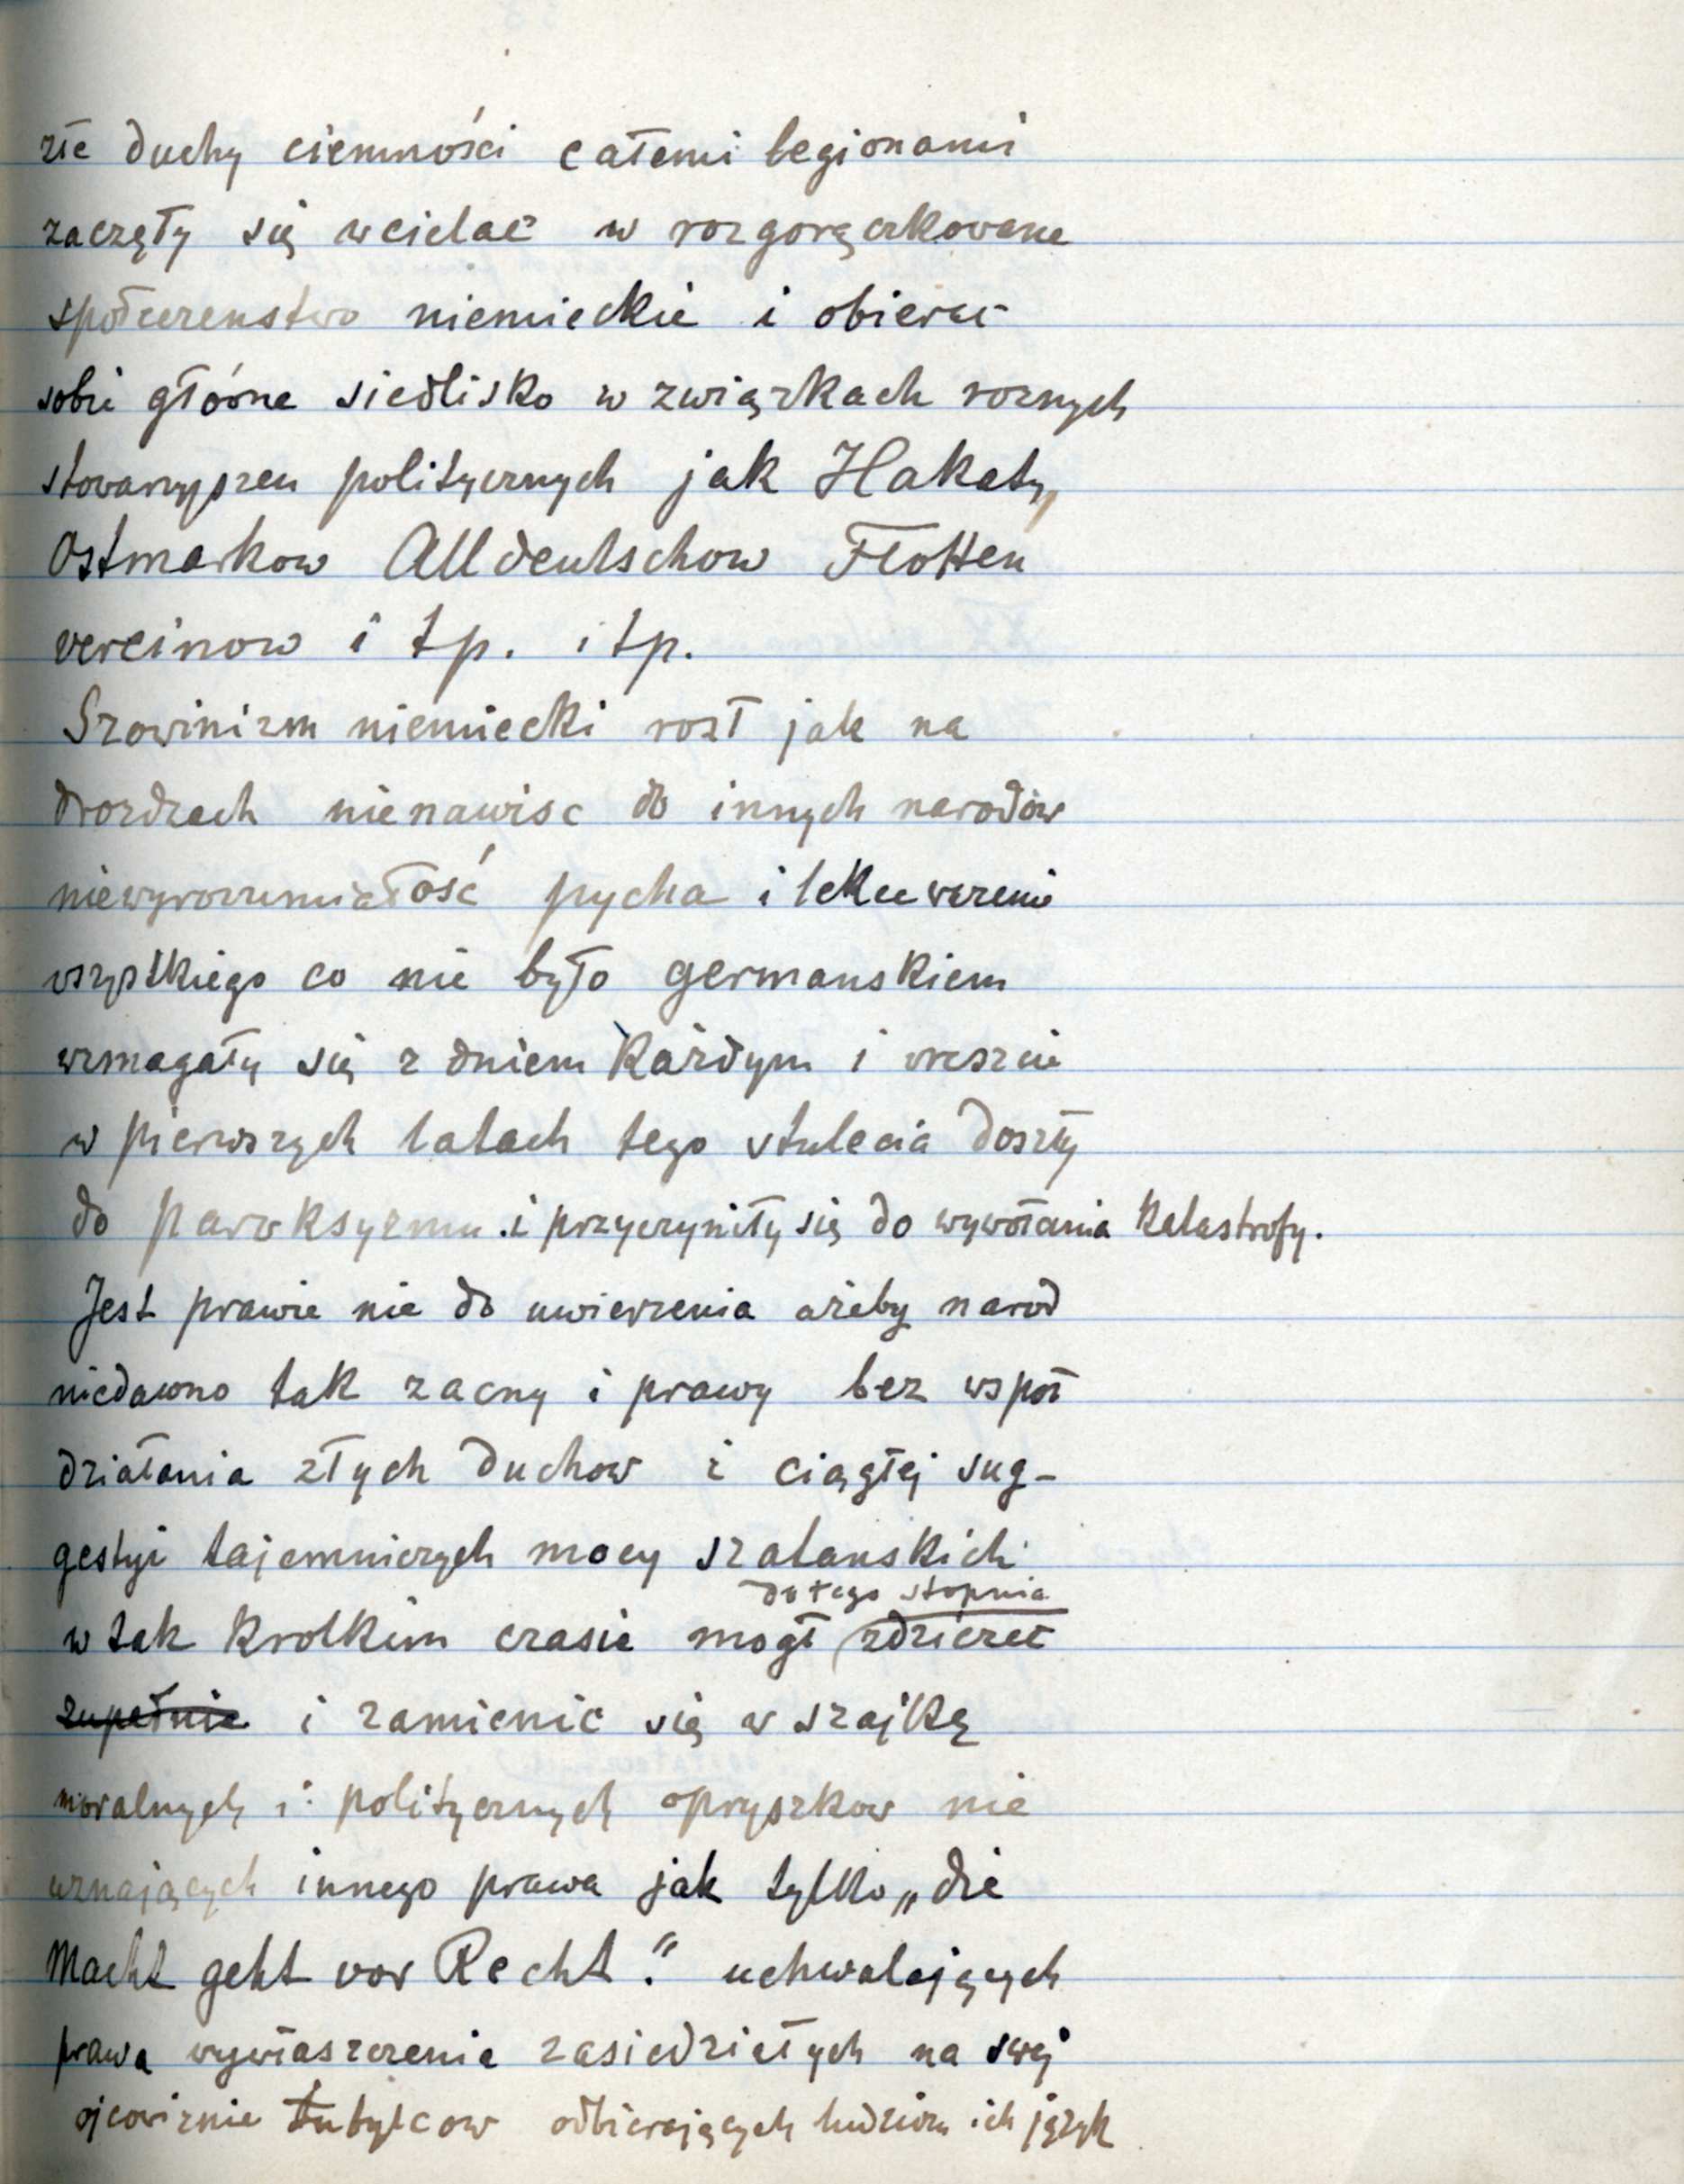 złe duchy ciemności całemi legionami
zaczęły się wcielać w rozgorączkowane
społeczenstwo niemieckie i obierać
sobie główne siedlisko w związkach roznych
stowarzyszen politycznych jak Hakaty,
Ostmarkow Alldeutschow Flotten
vereinow i tp. i tp.
Szowinizm niemiecki rosł jak na
drozdzach nienawisc do innych narodów
niewyrozumiałość pycha i lekcewazenie
wszystkiego co nie było germanskiem
wzmagały się z dniem każdym i wreszcie
w pierwszych latach tego stulecia doszły
do paroksyzmu i przyczyniły się do wywołania katastrofy.
Jest prawie nie do uwierzenia ażeby narod
niedawno tak zacny i prawy bez wspoł
działania złych duchow i ciągłej sug-
gestyi tajemniczych mocy szatanskich
do tego stopnia
w tak krotkim czasie mogł zdziczeć
zupełnie i zamienic się w szajkę
moralnych i politycznych opryszkow nie
uznających innego prawa jak tylko „die
Macht geht vor Recht." uchwalających
prawa wywłaszczenia zasiedziełych na swej
ojcowiznie tubylcow odbierających ludziom ich język